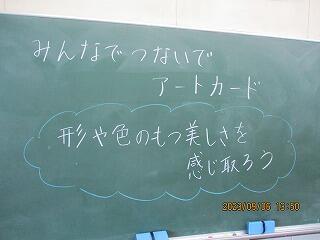 みんなでつないで
アートカード
形や色のもつ美しさを
感じ取ろう